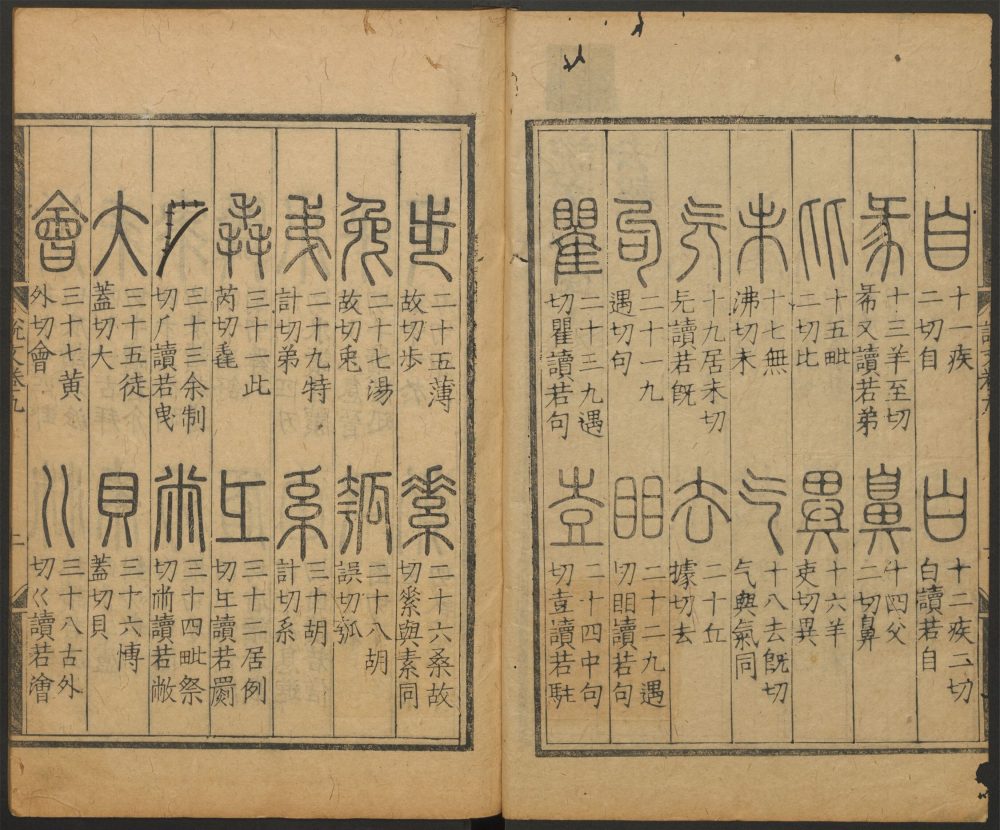 自 十一疾
二切自
白 十二疾二切
白讀若自
㣇 十三羊至切
㣇又讀若弟
鼻 十四父
二切鼻
比 十五毗
二切比
異 十六羊
吏切異
未 十七無
沸切未
气 十八去旣切
气與氣同
旡 十九居未切
旡讀若旣
去 二十丘
據切去
句 二十一九
遇切句
䀠 二十二九遇
切䀠讀若句
瞿 二十三九遇
切瞿讀若句
壴 二十四中句
切壴讀若駐
步 二十五薄
故切步
素 二十六桑故
切𦃃與素同
兔 二十七湯
故切兔
瓠 二十八胡
誤切瓠
弟 二十九特
計切弟
系 三十胡
計切系
毳 三十一此
芮切毳
彑 三十二居例
切彑讀若罽
𠂆 三十三余制
切𠂆讀若曳
㡀 三十四毗祭
切㡀讀若敝
大 三十五徒
蓋切大
貝 三十六博
蓋切貝
會 三十七黃
外切會
巜 三十八古外
切巜讀若澮
說文卷九
二